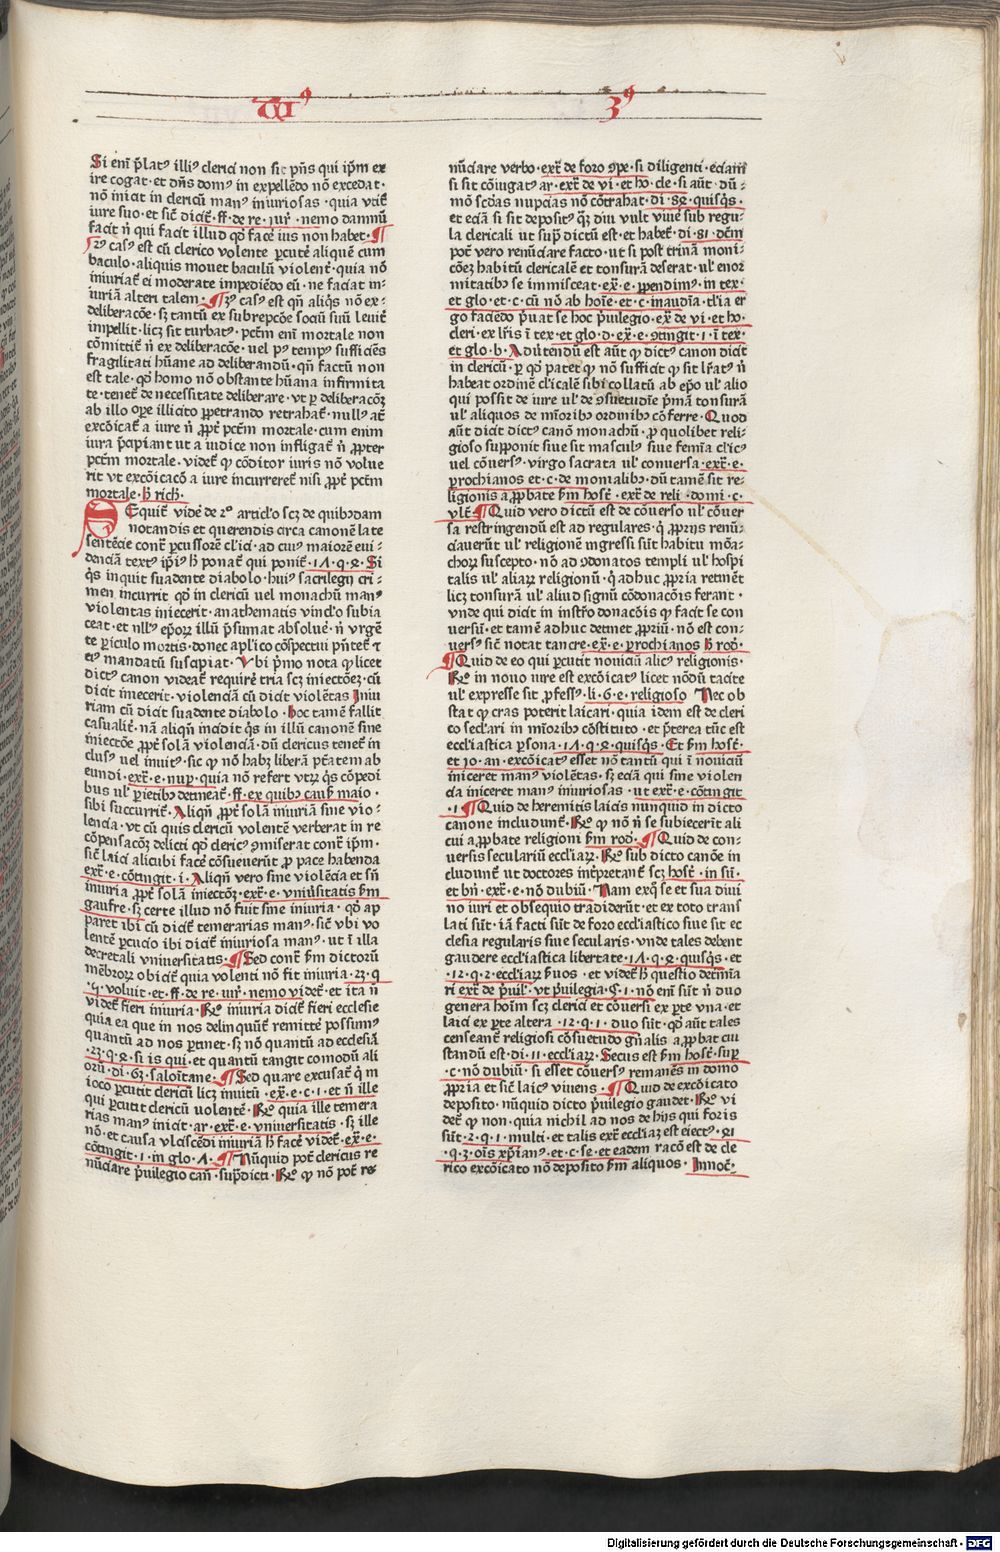 Si enī p̄latꝰ illiꝰ clerici non sit p̄ns qui ip̄m ex
ire cogat · et dn̄s domꝰ in expellēdo nō excedat ·
nō iniciat in clericū manꝰ iniuriosas · quia vtit᷑
iure suo · et sic̄ dicit᷑ · ff · de re · iur̄ · nemo damnū
facit n̄ qui facit illud qd̓ face᷑ ius non habet · ¶
2ꝰ casꝰ est cū clerico volente p̲cute᷑ aliquē cum
baculo · aliquis mouet baculū violent᷑ · quia nō
iniuriat᷑ ei moderate impediēdo eū · ne faciat in⸗
iuriā alteri talem · ¶ 3ꝰ casꝰ est qn̄ aliqͥs nō ex⸗
deliberacōe · sꝫ tantū ex subrepcōe sociū suū leuit᷑
impellit · licꝫ sit turbatꝰ · pctm̄ enī mortale non
cōmittit᷑ n̄ ex deliberacōe · vel pꝰ tempꝰ sufficiēs
fragilitati hūane ad deliberandū · qn̄ factū non
est tale · qd̓ homo nō obstante hūana infirmita
te · tenet᷑ de necessitate deliberare · vt p̲ deliberacōꝫ
ab illo oꝑe illicito ꝑpetrando retrahat᷑ · nullꝰ at̄
excōicat᷑ a iure n̄ ꝓpt᷑ pctm̄ mortale · cum enim
iura p̄cipiant vt a iudice non infligat᷑ n̄ ꝓpter
pctm̄ mortale · videt᷑ ꝙ cōditor iuris nō volue
rit vt excōicacō a iure incurreret᷑ nisi ꝓpt᷑ pctm̄
mortale · h̄ rich̄ ·
SEquit᷑ videre de 2º articlo scꝫ de quibꝰdam
notandis et querendis circa canonē late
sentēcie cont᷑ ꝑcussorē cl̓ici · ad cuiꝰ maiorē eui ·
denciā textꝰ ip̄iꝰ h̄ ponat᷑ qui ponit᷑ · 17 · q · 4 · Si
qͥs inquit suadente diabolo · huiꝰ sacrilegij cri ·
men incurrit qd̓ in clericū vel monachū manꝰ
violentas iniecerit · anathematis vincl̓o subia
ceat · et nllꝰ ep̄oꝝ illū p̄sumat absolue᷑ · n̄ vrgē
te ꝑiculo mortis · donec apl̓ico cōspectui p̄ntet᷑ ⁊
eiꝰ mandatū suscipiat · Vbi p̄mo nota ꝙ licet
dictꝰ canon videat᷑ require᷑ tria scꝫ iniectōeꝫ · cū
dicit iniecerit · violenciā cū dicit violētas Iniu
riam cū dicit suadente diabolo · hoc tamē fallit
casualit᷑ · nā aliqn̄ incidit qͥs in illū canonē sine
iniectōe ꝓpt᷑ solā violenciā · dū clericus tenet᷑ in
clusꝰ vel inuitꝰ · sic ꝙ nō habꝫ liberā ptātem ab
eundi · ext᷑ · e · nuꝑ · quia nō refert vtrꝫ qͥs cōpedi
bus ul̓ ꝑietibꝰ detineat᷑ · ff · ex quibꝰ causꝭ maio ·
sibi succurrit᷑ · Aliqn̄ ꝓpt᷑ solā iniuriā sine vio⸗
lencia · vt cū quis clericū volentē verberat in re
cōpensacōꝫ delicti qd̓ clericꝰ ꝯmiserat cont᷑ ip̄m ·
sic̄ laici alicubi face᷑ cōsueuerūt ꝓ pace habenda
ext᷑ · e · cōtingit · i · Aliqn̄ vero sine violēcia et sn̄
iniuria ꝓpt᷑ solā iniectōꝫ · ext᷑ · e · vniūsitatis ẜm
gaufre · sꝫ certe illud nō fuit sine iniuria · qd̓ ap
paret ibi cū dicit᷑ temerarias manꝰ · sic̄ vbi vo
lentē ꝑcucio ibi dicit᷑ iniuriosa manꝰ · ut ī illa
decretali vniuersitatis · ¶ Sed cont᷑ ẜm dictorū
mēbroꝝ obicit᷑ quia volenti nō fit iniuria · 23 · q
· 4 · voluit · et · ff · de re · iur̄ · nemo videt᷑ · et ita n̄
videt᷑ fieri iniuria · ℟º iniuria dicit᷑ fieri ecclesie
quia ea que in nos delinquūt᷑ remitte᷑ possumꝰ
quantū ad nos ꝑtinet · sꝫ nō quantū ad ecclesiā
· 23 · q · 4 · si is qui · et quantū tangit comodū ali
orū · di · 63 · salonitane · ¶ Sed quare excusat᷑ qͥ ī
ioco ꝑcutit clericū licꝫ inuitū · ext᷑ · e · c · 1 · et n̄ ille
qui ꝑcutit clericū volentē · ℟º quia ille temera
rias manꝰ inicit · ar · ext᷑ · e · vniuersitatis · sꝫ ille
nō · et causa vlciscēdi iniuriā h̄ face᷑ videt᷑ · ext᷑ · e ·
cōtingit · 1 · in glo · A · ¶ Nūquid pot᷑ clericus re
nūciare p̄uilegio can̄ · sup̄dicti · ℟º ꝙ nō pot᷑ re
nūciare verbo · ext᷑ de foro ꝯpe · si diligenti · eciam
si sit cōiugatꝰ ar · ext᷑ de vi · et ho · cle · si aūt · dū⸗
mō scd̄as nupcias nō cōtrahat · di · 84 · quisqͥs ·
et eciā si sit depositꝰ qͣꝫ diu vult viue᷑ sub regu⸗
la clericali ut supͣ dictū est · et habet᷑ · di · 81 · dictū
pot᷑ vero renūciare facto · ut si post trinā moni⸗
cōeꝫ habitū clericalē et tonsurā deserat · ul̓ enor
mitatibꝰ se immisceat · ext᷑ · e · ꝑpendimꝰ · in tex ·
et glo · et · c · cū nō ab hoīe · et · c · inaudīa · cl̓ia er
go faciēdo p̄uat se hoc p̄uilegio · ext᷑ de vi · et ho ·
cleri · ex lr̄is ī tex · et glo · d · ext᷑ · e · ꝯtingit · 1 · ī tex ·
et glo · b · Aduertendū est aūt ꝙ dictꝰ canon dicit
in clericū · ꝑ qd̓ patet ꝙ nō sufficit ꝙ sit lr̄atꝰ n̄
habeat ordinē cl̓icalē sibi collatū ab ep̄o ul̓ alio
qui possit de iure ul̓ de ꝯsuetudīe p̄mā tonsurā
ul̓ aliquos de mīoribꝰ ordinibꝰ cō ferre · Quod
aūt dicit dictꝰ canō monachū · ꝓ quolibet reli⸗
gioso supponit siue sit masculꝰ siue femīa cl̓icꝰ
uel cōuersꝰ · virgo sacrata ul̓ conuersa · ext᷑ · e ·
ꝑrochianos · et · c · de monialibꝰ · dū tamē sit re⸗
ligionis aꝓbate ẜm host᷑ · ext᷑ · de reli · domi · c ·
vlt᷑ · ¶ Quid vero dictū est de cōuerso ul̓ cōuer
sa restringendū est ad regulares · qͥ ꝓprijs renū⸗
ciauerūt ul̓ religionē ingressi sūt habitu mōa⸗
choꝝ suscepto · nō ad ꝯdonatos templi ul̓ hospi
talis ul̓ aliaꝝ religionū · qͥ adhuc ꝓpria retinēt
licꝫ tonsurā ul̓ aliud signū cōdonacōis ferant ·
vnde qui dicit in instrō donacōis ꝙ facit se con
uersū · et tamē adhuc detinet ꝓpriū · nō est con⸗
uersꝰ sic̄ notat tancre · ext᷑ · e · ꝑrochianos h̄ rod̄ ·
¶ Quid de eo qui ꝑcutit nouiciū alicꝰ religionis ·
℟º in nouo iure est excōicatꝰ licet nōdū tacite
ul̓ expresse sit ꝓfessꝰ · li · 6 · e · religioso Nec ob
stat ꝙ cras poterit laicari · quia idem est de cleri
co secl̓ari in mīoribꝰ cōstituto · et p̄terea tūc est
eccl̓iastica ꝑsona · 17 · q · 4 · quisqͥs · Et ẜm host᷑ ·
et io · an · excōicatꝰ esset nō tantū qui ī nouiciū
iniceret manꝰ violētas · sꝫ eciā qui sine violen
cia iniceret manꝰ iniuriosas · ut ext᷑ · e · cōtingit
· 1 · ¶ Quid de heremitis laicis nunquid in dicto
canone includunt᷑ · ℟º ꝙ nō n̄ se subiecerīt ali
cui aꝓbate religioni ẜm rod̄ · ¶ Quid de con⸗
uersis seculariū eccl̓iaꝝ · ℟º sub dicto canōe in
cludunt᷑ ut doctores int᷑pretant᷑ scꝫ host᷑ · in sū ·
et bn̄ · ext᷑ · e · nō dubiū · Nam exqͦ se et sua diui
no iuri et obsequio tradiderūt · et ex toto trans
lati sūt · iā facti sūt de foro eccl̓iastico siue sit ec
clesia regularis siue secularis · vnde tales debent
gaudere eccl̓iastica libertate · 17 · q · 4 · quisqͥs · et
· 12 · q · 2 · eccl̓iaꝝ ẜuos · et videt᷑ h̄ questio determīa
ri ext᷑ de p̄uil᷑ · vt p̄uilegia · §· 1 · nō enī sūt n̄ duo
genera hoīm scꝫ clerici et cōuersi ex ꝑte vna · et
laici ex ꝑte altera · 12 · q · 1 · duo sūt · qd̓ aūt tales
censeant᷑ religiosi cōsuetudo gn̄alis aꝓbat cui
standū est · di · 11 · eccl̓iaꝝ · Secus est ẜm host᷑ · supͣ
· c · nō dubiū · si esset cōuersꝰ remanēs in domo
ꝓpria et sic̄ laicꝰ viuens · ¶ Quid de excōicato
deposito · nūquid dicto p̄uilegio gaudet · ℟º vi
det᷑ ꝙ non · quia nichil ad nos de hijs qui foris
sūt · 2 · q · 1 · multi · et talis ext᷑ eccl̓iaꝫ est eiectꝰ · 21
· q · 3 · oīs xp̄ianꝰ · et · c · se · et eadem racō est de cle
rico excōicato nō deposito ẜm aliquos · Innoc᷑ ·
Digitalisierung gefördert durch die Deutsche Forschungsgemeinschaft · DFG